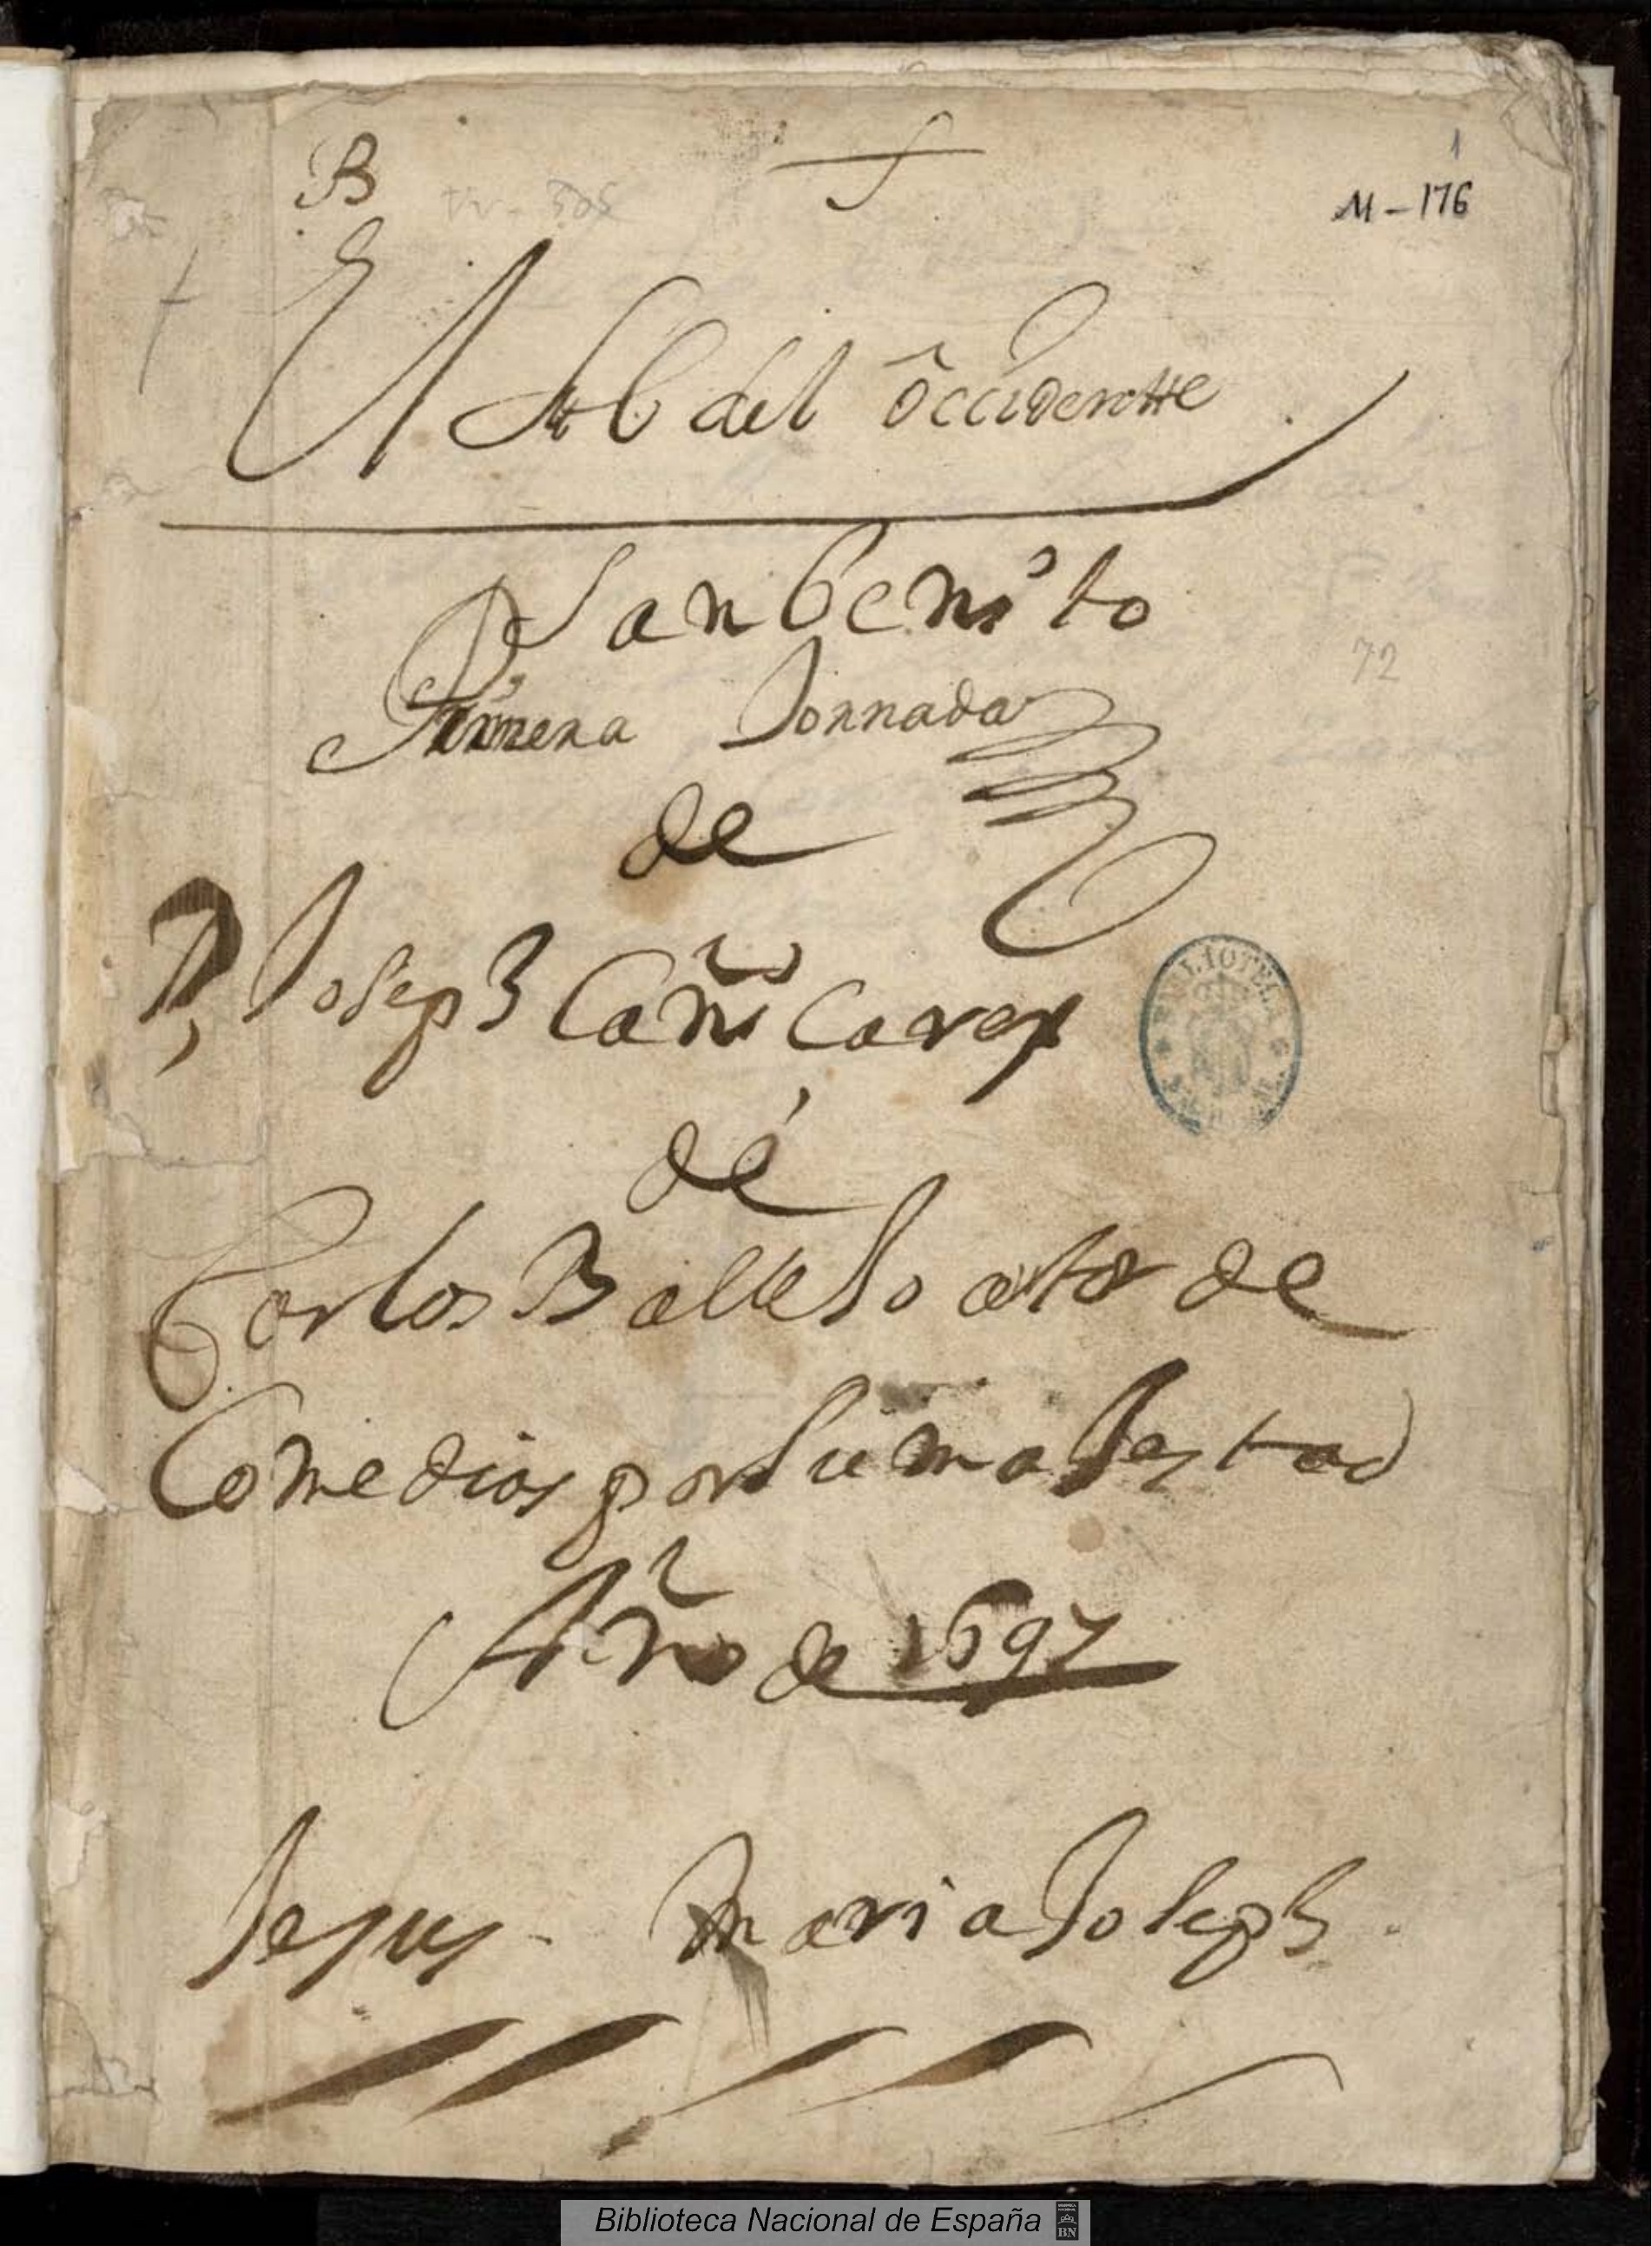 B
1
M-176
El Sol del Occidentte
San Benito
Primera Jornada
de
D, Joseph Cañiçares
de
Carlos Ballexo autor de
Comedias por su majestad
Año de 1697
72
BIBLIOTECA
Jesus - Maria Joseph.
Biblioteca Nacional de España
BN